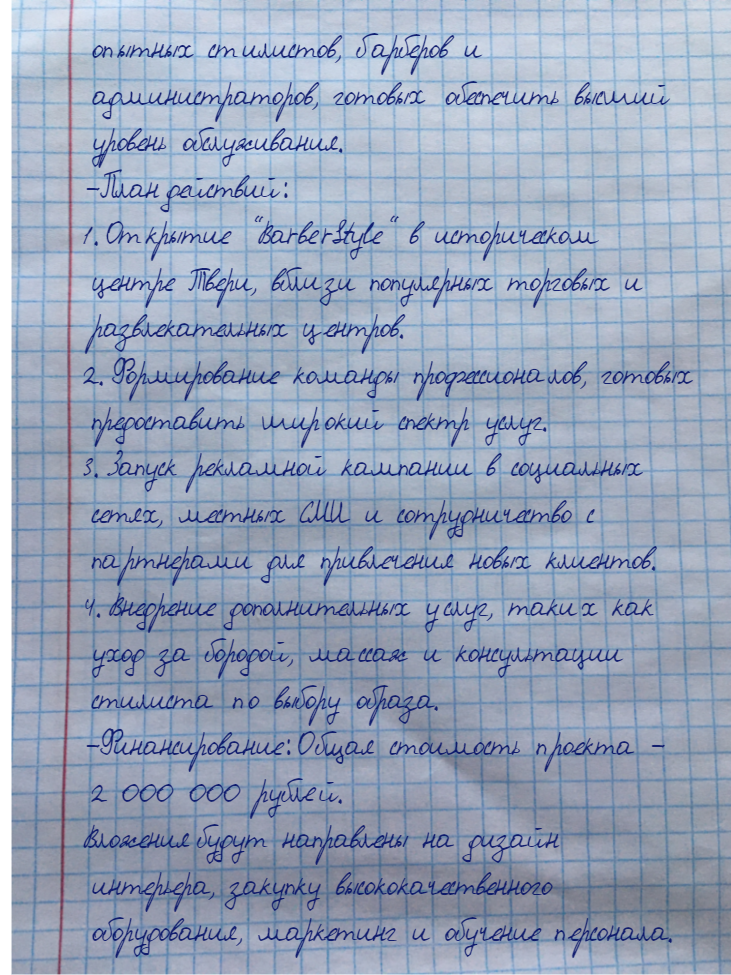 опытных стилистов, барберов и
администраторов, готовых обеспечить высший
уровень обслуживания.
-План действий:
1. Открытие "BarberStyle" в историческом
центре Твери, вблизи популярных торговых и
развлекательных центров.
2. Формирование команды профессионалов, готовых
предоставить широкий спектр услуг.
3. Запуск рекламной кампании в социальных
сетях, местных СМИ и сотрудничество с
партнерами для привлечения новых клиентов.
4. Внедрение дополнительных услуг, таких как
уход за бородой, массаж и консультации
стилиста по выбору образа.
-Финансирование: Общая стоимость проекта -
2 000 000 рублей.
Вложения будут направлены на дизайн
интерьера, закупку высококачественного
оборудования, маркетинг и обучение персонала.